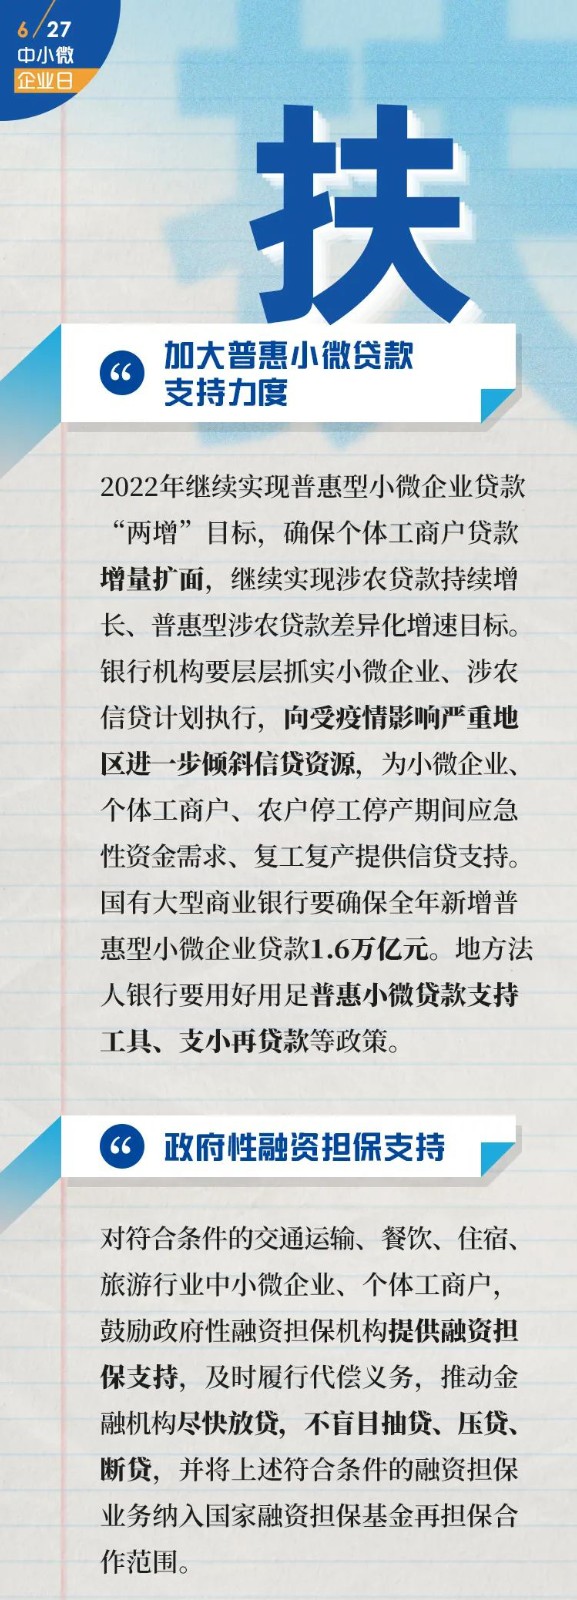 6/27
中小微
企业日
扶
“
加大普惠小微贷款
支持力度
2022年继续实现普惠型小微企业贷款
“两增”目标，确保个体工商户贷款
增量扩面，继续实现涉农贷款持续增
长、普惠型涉农贷款差异化增速目标。
银行机构要层层抓实小微企业、涉农
信贷计划执行，向受疫情影响严重地
区进一步倾斜信贷资源，为小微企业、
个体工商户、农户停工停产期间应急
性资金需求、复工复产提供信贷支持。
国有大型商业银行要确保全年新增普
惠型小微企业贷款1.6万亿元。地方法
人银行要用好用足普惠小微贷款支持
工具、支小再贷款等政策。
“
政府性融资担保支持
对符合条件的交通运输、餐饮、住宿、
旅游行业中小微企业、个体工商户，
鼓励政府性融资担保机构提供融资担
保支持，及时履行代偿义务，推动金
融机构尽快放贷，不盲目抽贷、压贷、
断贷，并将上述符合条件的融资担保
业务纳入国家融资担保基金再担保合
作范围。